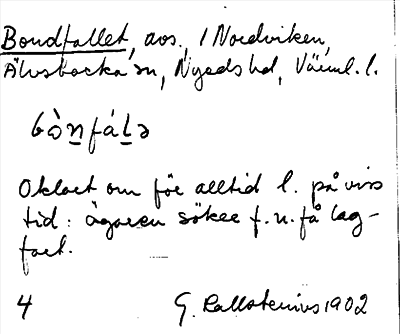 Bondfallet, avs., i Nordviken,
Älvsbacka sn, Nyeds hd, Värml. l.
bò̀n̲fál̲ə
Oklart om för alltid l. på viss
tid: ägaren söker f. n. få lag-
fart.
4 G. Kallstenius 1902